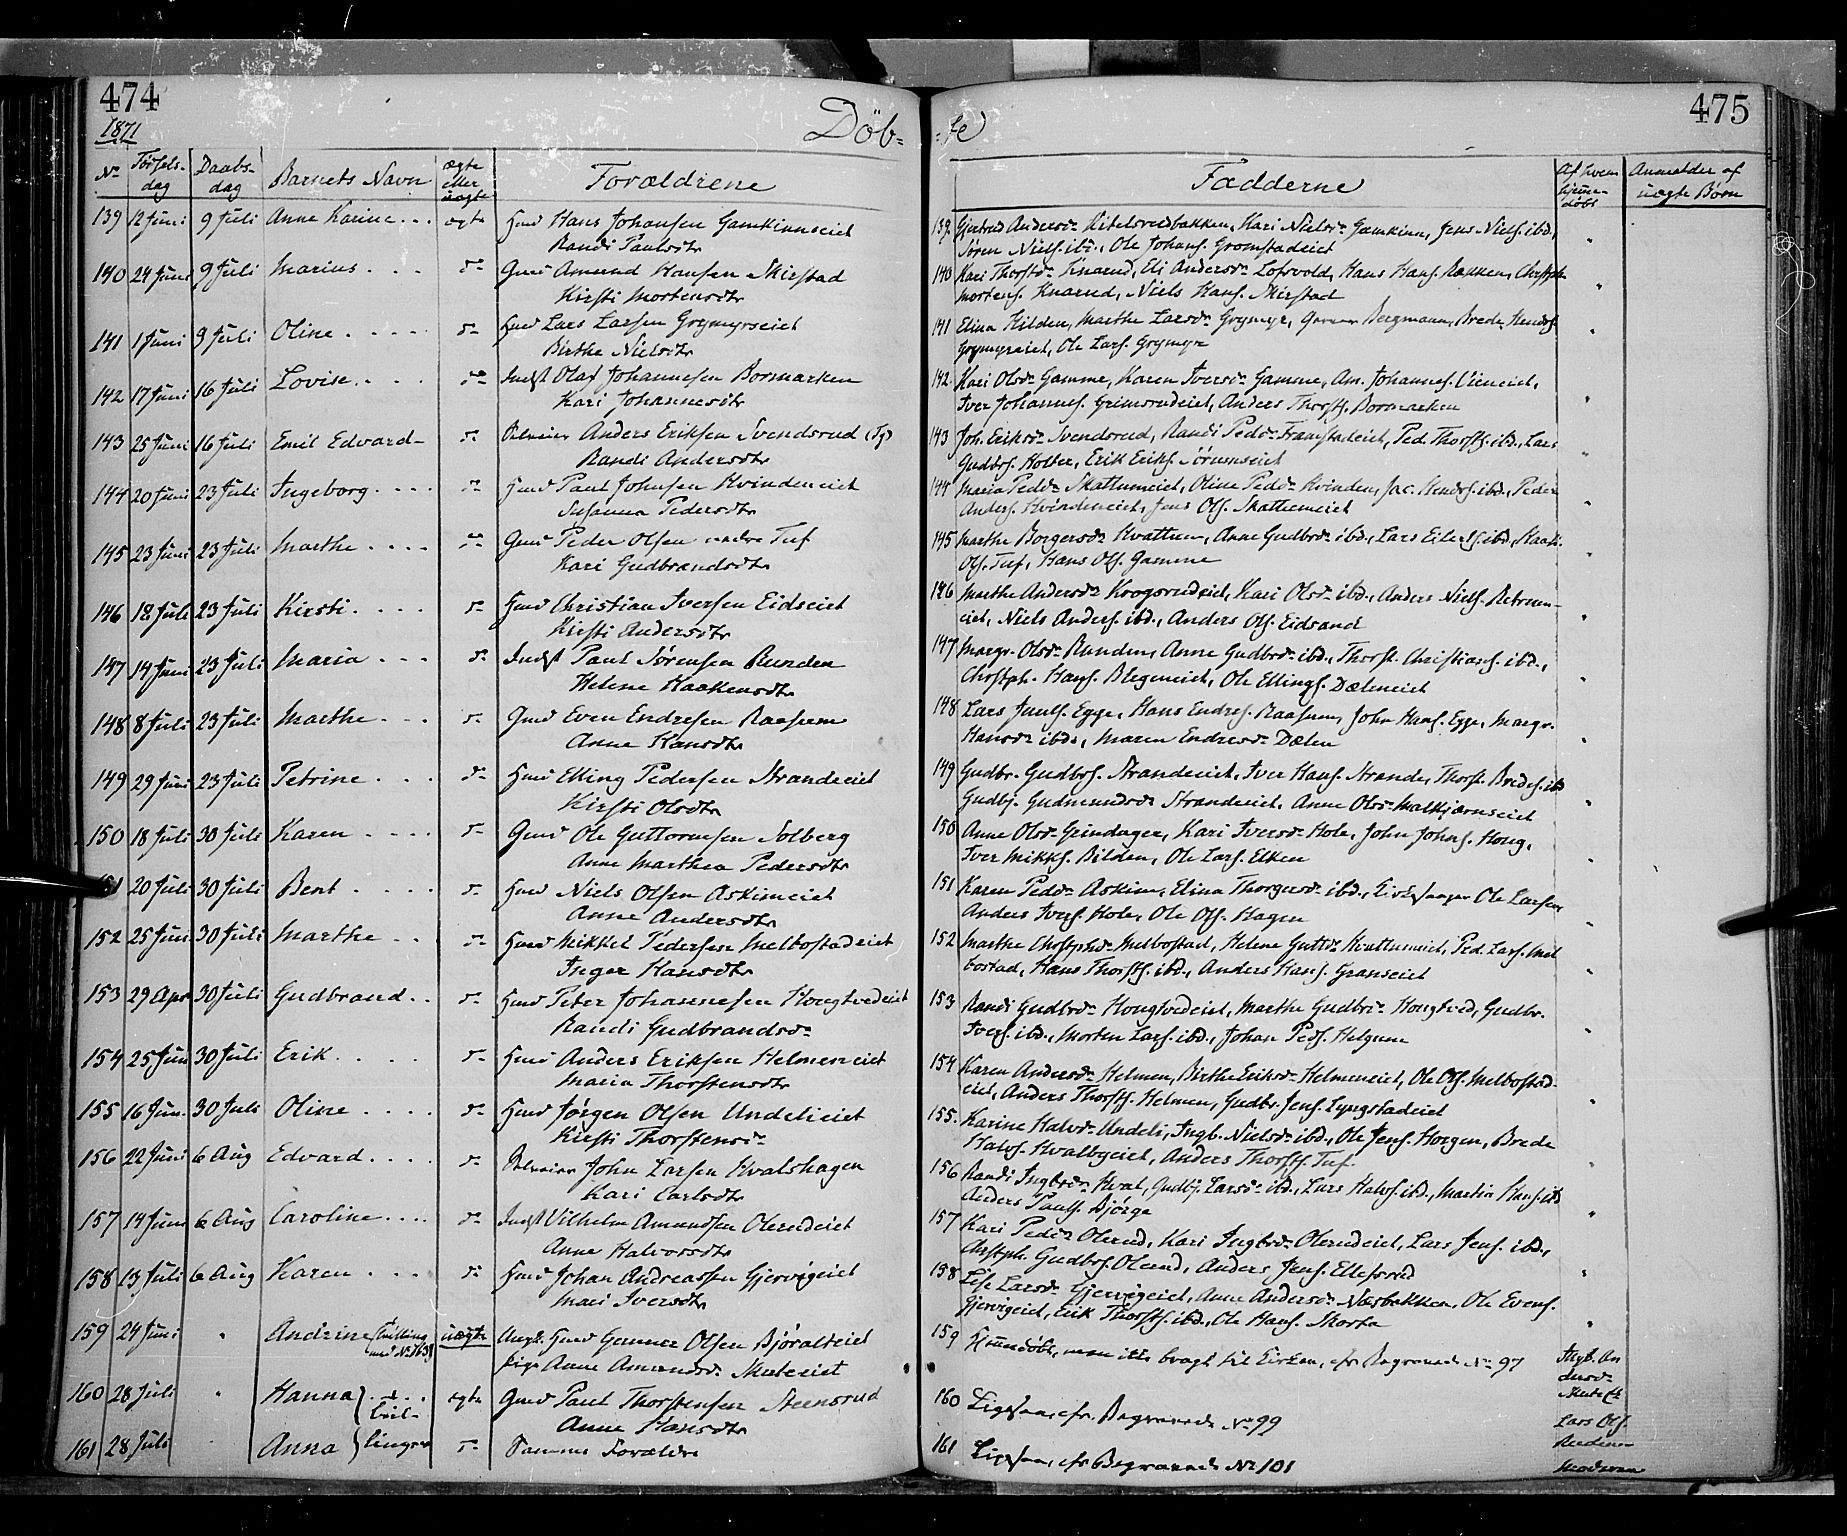 474
1871
Döb-
No Fødsels-dag Daabs-dag Barnets Navn ægte eller uægte Forældrene
139 12 Juni 9 Juli Anne Karine ægte Hmd Hans Johansen Gamkinnseiet
Randi Paulsdtr
140 24 Juni 9 Juli Marius Gmd Amund Hansen Skirstad
Kirsti Mortensdtr
141 1 Juni 9 Juli Oline Hmd Lars Larsen Grymyrseiet
Birthe Nielsdtr
142 17 Juni 16 Juli Lovise Indst Olaf Johannesen Bormarken
Kari Johannesdtr
143 25 Juni 16 Juli Emil Edvard Anders Eriksen Svendsrud
Randi Andersdtr
144 20 Juni 23 Juli Ingeborg Hmd Paul Johnsen Kvindeneiet
Susanna Pedersdtr
145 23 Juni 23 Juli Marthe Gmd Peder Olsen nedre Tuf
Kari Gudbrandsdtr
146 12 Juli 23 Juli Kirsti Hmd Christian Iversen Eidseiet
Kirsti Andersdtr
147 14 Juni 23 Juli Maria Indst Paul Sørensen Runden
Helene Haakensdtr
148 8 Juli 23 Juli Marthe Gmd Even Endresen Raasum
Anne Hansdtr
149 29 Juni 23 Juli Petrine Hmd Elling Pedersen Strandeeiet
Kirsti Olsdtr
150 18 Juli 30 Juli Karen Gmd Ole Guttormsen Solberg
Anne Marthea Pedersdtr
151 20 Juli 30 Juli Bent Hmd Niels Olsen Askimeiet
Anne Andersdtr
152 25 Jun 30 Juli Marthe Hmd Mikkel Pedersen Melbostadeiet
Inger Hansdtr
153 29 Apr 30 Juli Gudbrand Hmd Peter Johannesen Hougtvedeiet
Randi Gudbrandsd-
154 25 Jun 30 Juli Erik Hmd Anders Eriksen Helmeneiet
Maria Thorstensdtr
155 16 Jun. 30 Juli Oline Hmd Jørgen Olsen Undelieiet
Kirsti Thorstensd-
156 22 Juni 6 Aug Edvard John Larsen Hvalshagen
Kari Carlsdtr
157 14 Juni 6 Aug Caroline Indst Vilhelm Amundsen Olerudeiet
Anne Halvorsdtr
158 13 Juli 6 Aug Karen Hmd Johan Andreassen Gjervigeiet
Mari Iversdtr
159 24 Juni " Andrine uægte Ungk. Gunner Olsen Bjøralteiet
Pige Anne Amundsd-
160 28 Juli " Hanna ægte Gmd Paul Thorstensen Steensrud
Anne Hansdtr
161 28 Juli Anna Tvil- linger Samme Forældre
475
-te
Fadderne Af hvem hjemme-døbt Anmelder af uægte Børn
139. Gjertrud Andersd- Kittelsrudbakken, Kari Nielsd- Gamkinn, Jens Niels. ibd.,
Søren Niels. ibd., Ole Johans. Gromstadeiet
140 Kari Thorstd- Knarud, Eli Andersd- Lofsvold, Hans Hans. Chrstph.
Mortens. Knarud, Niels Hans. Skirstad
141 Elina Hilden, Marthe Larsd- Grymyr, Bergmann, Brede Hends.
Grymyreiet, Ole Lars. Grymyr
142. Kari Olsd- Gamme, Karen Iversd- Gamme, Am. Johannes.
Iver Johannes. Grimsrudeiet, Anders Thorsts. Bormarken
143 Joh. Eriksd- Svendsrud, Randi Pedd- Framstadeiet, Ped. Thorsts. ibd., Lars
Gudbrs. Holter, Erik Eriks. Sørumseiet
144 Maria Pedd- Skattumeiet, Oline Pedd- Kvinden, Jac. Hends. ibd., Peder
Anders. Kvindeneiet, Jens Ols. Skattumeiet
145 Marthe Borgersd- Hvattum, Anne Gudbrd- ibd., Lars Eilerts. ibd.,
Ols. Tuf, Hans Ols. Gamme
146 Marthe Andersd- Kari Olsd- ibd., Anders Niels.
eiet, Niels Anders. ibd., Anders Ols. Eidsand
147 Margr. Olsd- Runden, Anne Gudbrd- ibd., Thorst. Christians. ibd.,
Chrstph. Hans. Blegeneiet, Ole Ellings. Dæleneiet
148 Lars Pauls. Egge, Hans Endres. Raasum, John Hans. Egge, Margr.
Hansd- ibd., Maren Endresd- Dælen
149 Gudbr. Gudbrs. Strandeeiet, Iver Hans. Strande, Thorst. Bredes. ibd
Gudbj. Gudmundsd- Strandeeiet, Anne Olsd- Malkjærnseiet
150 Anne Olsd- Grindager, Kari Iversd- Hole, John Johns. Houg,
Iver Mikks. Bilden, Ole Lars. Elken
151 Karen Pedd- Askim, Elina Thorgersd- ibd., Kirkesanger Ole Larsen,
Anders Ivers. Hole, Ole Ols. Hagen
152 Marthe Chrstphd- Melbostad, Helene Guttd- Hvattumeiet, Ped. Lars. Mel
bostad, Hans Thorsts. ibd., Anders Hans. Granseiet
153 Randi Gudbrd- Hougtvedeiet, Marthe Gudbrd- Hougtved, Gudbr.
Ivers. ibd., Morten Lars. ibd., Johan Peds. Helgum
154 Karen Andersd- Helmen, Birthe Eriksd- Helmeneiet, Ole Ols. Melbostad-
eiet, Anders Thorsts. Helmen, Gudbr. Jens. Lyngstadeiet
155. Karine Halvd- Undeli, Ingb. Nielsd- ibd., Ole Jens. Horgen, Brede
Halvs. Hvalbyeiet, Anders Thorsts. Tuf.
156 Randi Ingbrd- Hval, Gudbj. Larsd- ibd., Lars Halvs. ibd., Martin Hans. ibd
Anders Pauls. Bjørge
157 Kari Pedd- Olerud, Kari Ingbrd- Olerudeiet, Lars Jens. ibd.,
Chrstph. Gudbrs. Olerud, Anders Jens. Ellefsrud
158 Lise Larsd- Gjervigeiet, Anne Andersd- Næsbakken, Ole Evens.
Gjervigeiet, Erik Thorsts. ibd., Ole Hans. Skarta
159 Hjemmedøbt, men ikke bragt til Kirken, cfr Begravede No 97 Ingb. An
dersd-
160 Ligesaa, cfr. Begravede No 99 Lars Ols.
161 Ligesaa, cfr Begravede No 101